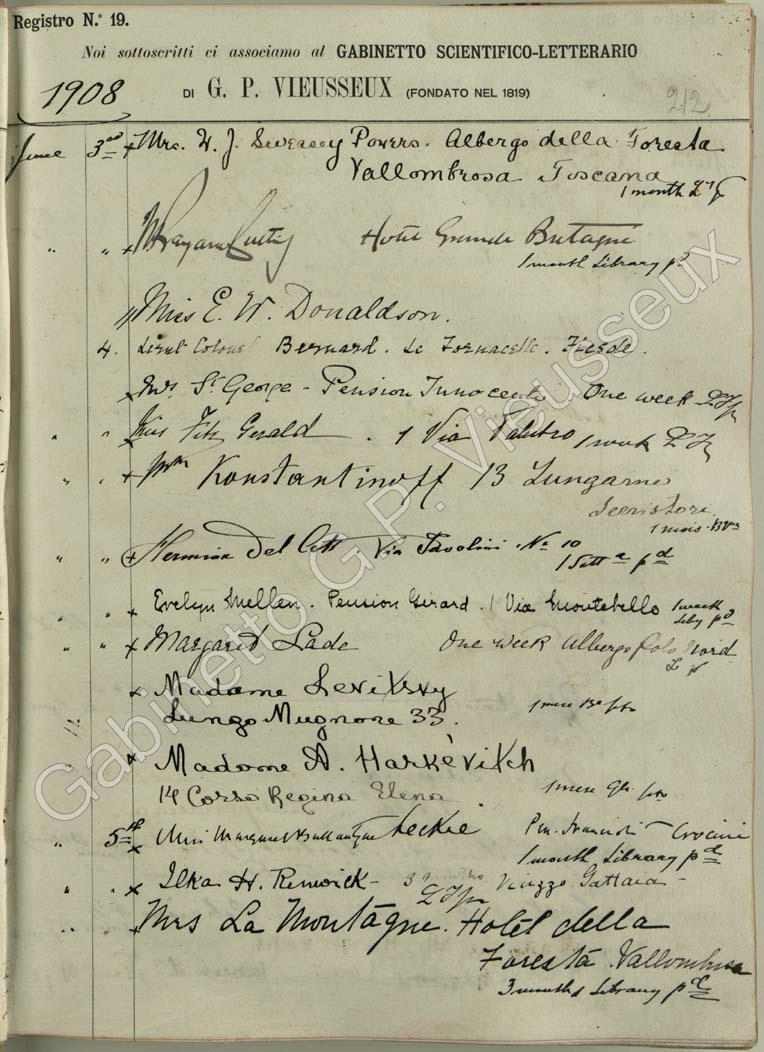 Registro N.º 19.
Noi sottoscritti ci associamo al GABINETTO SCIENTIFICO-LETTERARIO
1908
DI G. P. VIEUSSEUX (FONDATO NEL 1819)
212
June 3rd x Mrs. W. J. Sweasey Powers. Albergo della Foresta
Vallombrosa Toscana
1 month
" " x Hotel Grande Bretagne
1 month Library pd
Miss E. W. Donaldson.
4. Lieut Colonel Bernard. Le Fornacelle. Fiesole.
x Mrs St George - Pension Innocenti One week
" " x Miss Fitz Gerald . 1 Via Palestro 1 week
" " x Konstantinoff 13 Lungarno
Serristori
1 mois
" " x Hermina Del Via Tavolini No 10
1 Sett a pd
" " x Evelyn Mellen. Pension Girard. 1 Via Montebello 1 week
Liby pd
" " x Margaret Lade One week Albergo Polo Nord
x Madame Levitzky
Lungo Mugnone 33. 1 mese
" x Madame A. Harkévitch
14 Corso Regina Elena 1 mese
" 5th x Miss Margaret Ballantyne Leckie Pen. Crocini
1 month Library pd
" " x Ilka H. Renwick - 3 Viuzzo Gattaia -
" " x Mrs La Montágne. Hotél della
Forestá Vallombrosa
3 months Library pd
Gabinetto G. P. Vieusseux